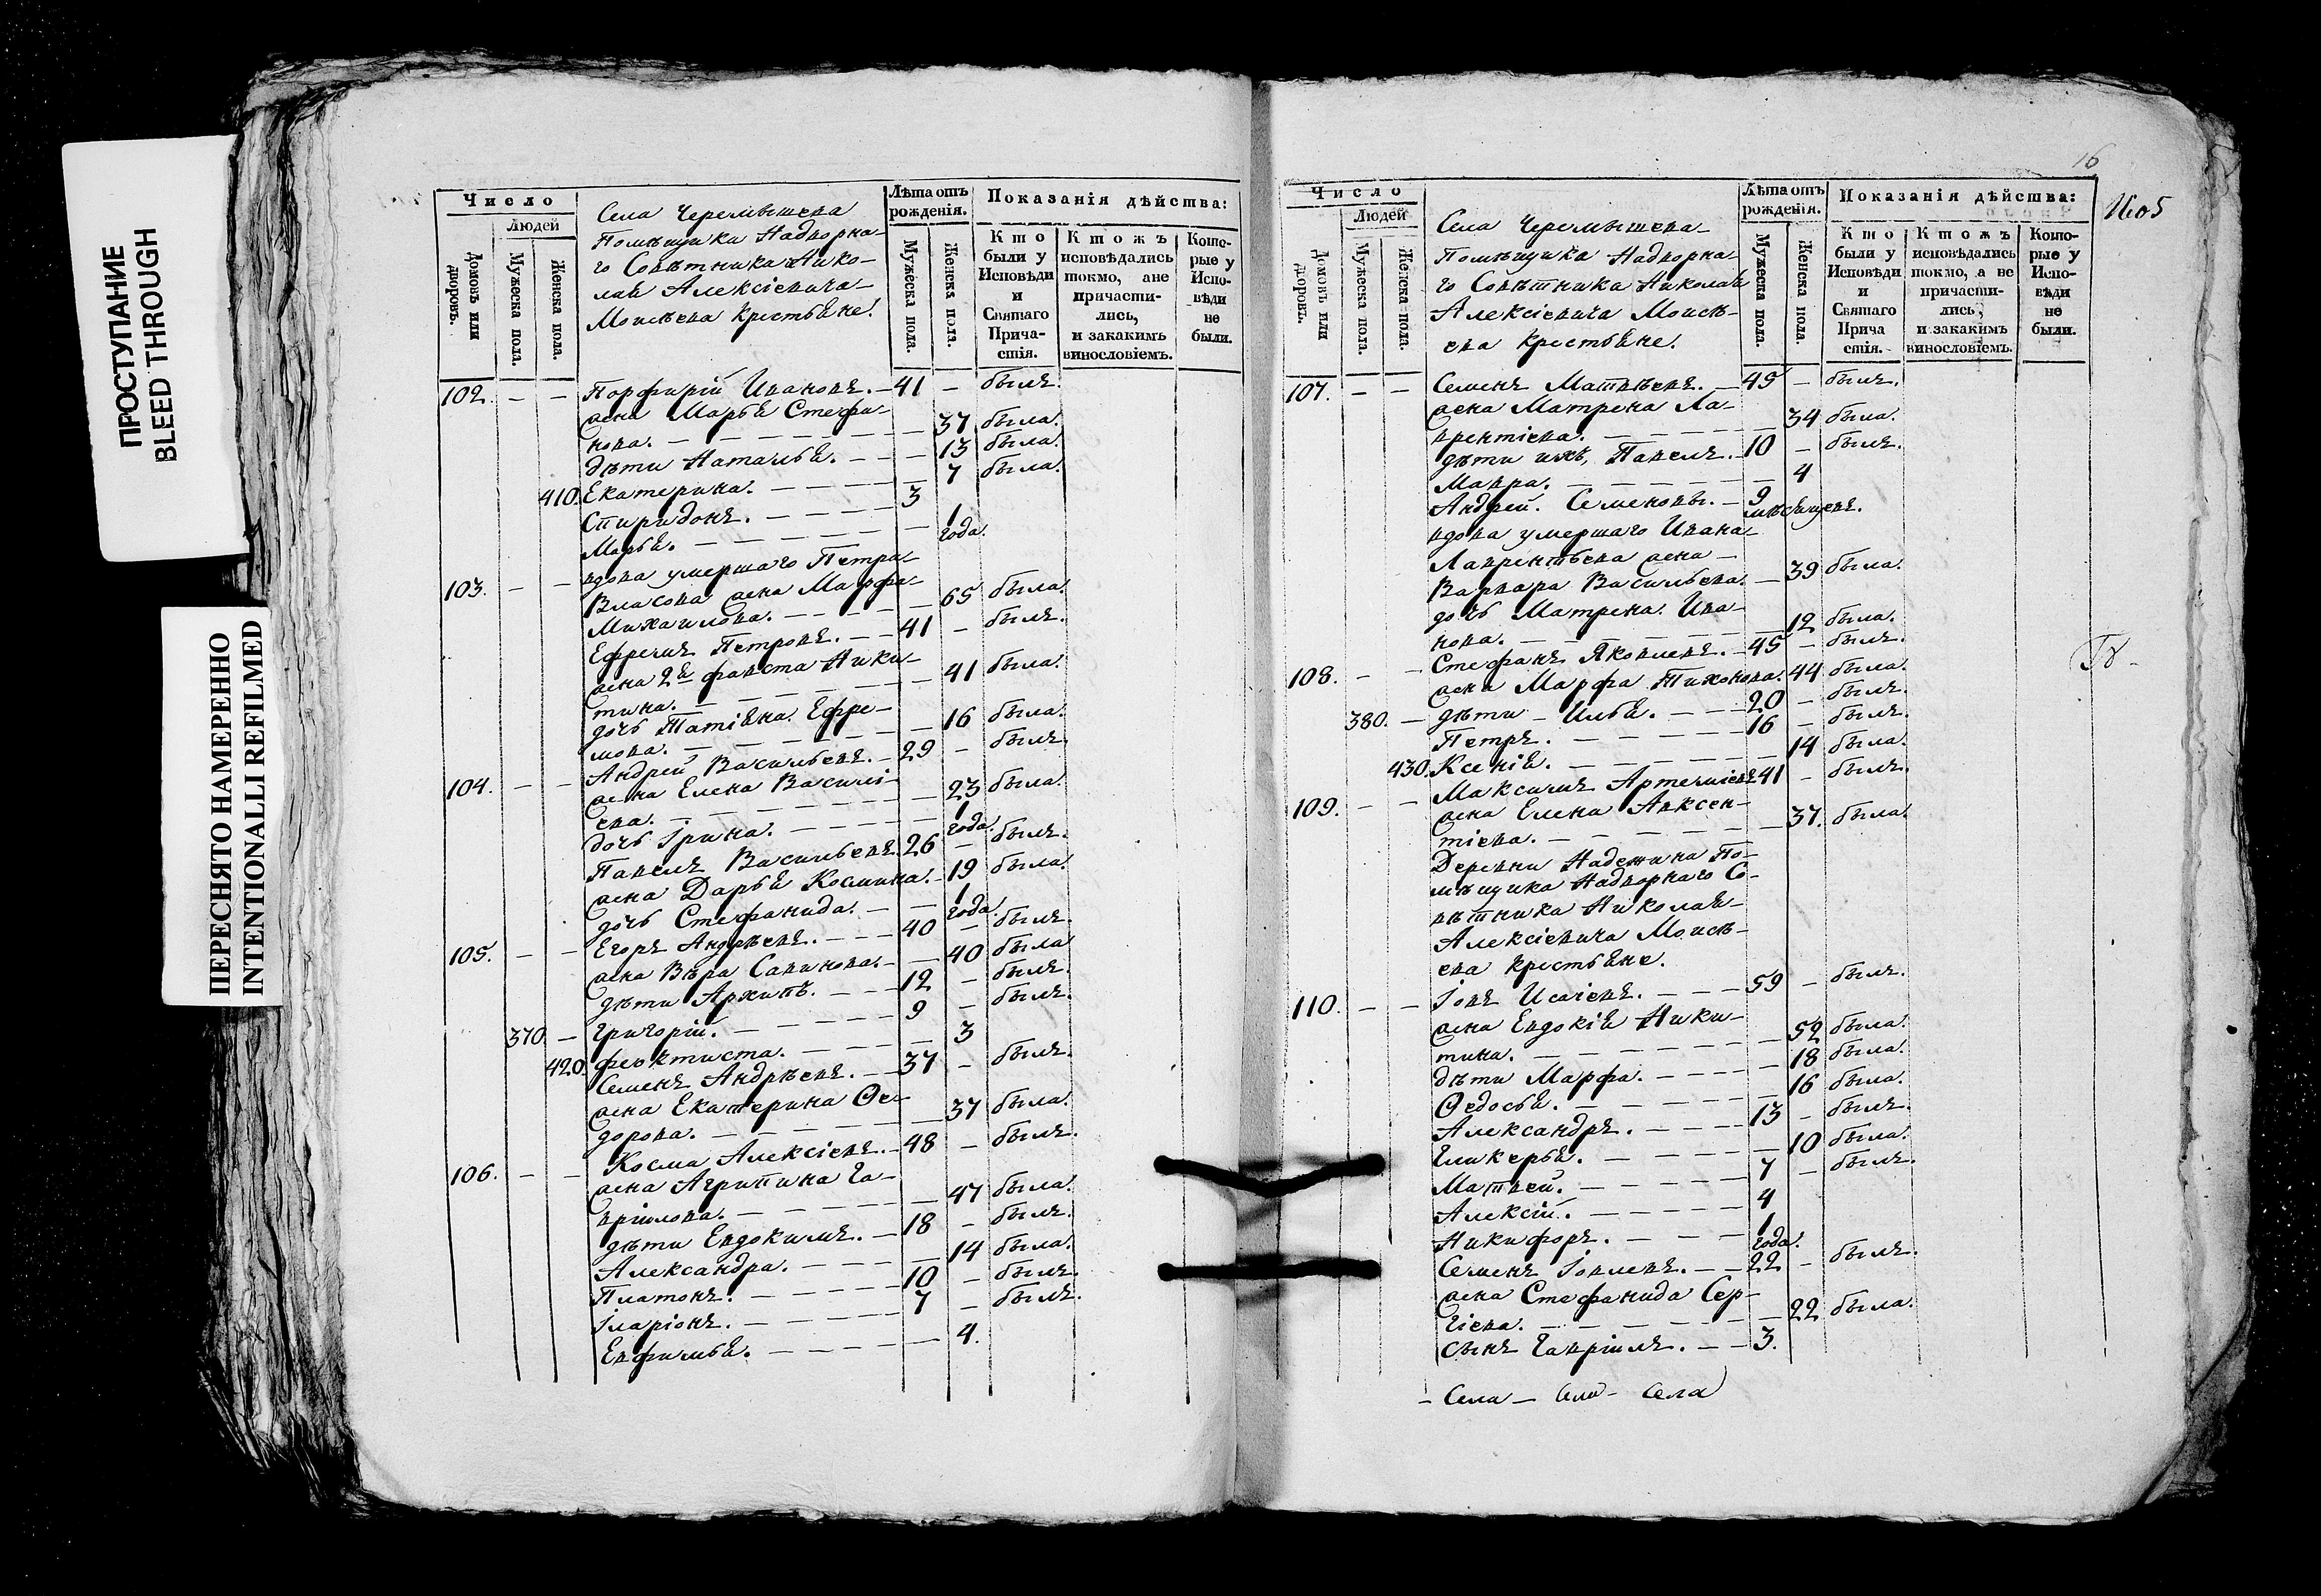 ПРОСТУПАНИЕ
BLEED THROUGH
ПЕРЕСНЯТО НАМЕРЕННО
INTENTIONALLI REFILMED
Число
Людей
Домовъ или дворовъ.
Мужеска пола.
Женска пола.
Села Черемышева
Помѣщика Надворна-
го Совѣтника Нико-
лая Алексіевича
Моисѣева крестьяне.
Лѣта отъ рожденія.
Мужеска пола.
Женска пола.
Показанія дѣйства:
Кто были у Исповѣди и Святаго Прича-стія.
Ктожъ исповѣдались токмо, а не причасти-лись, и закакимъ винословіемъ.
Кото-рые у Испо-вѣди не были.
102. — — Порфирій Ивановъ. — 41 — былъ.
жена Марья Стефа-
нова. — 37 была.
дѣти Наталья. — 13 была.
410. Екатерина. — 7 была.
Спиридонъ. — 3
Марья. — 1 года.
103. — — вдова умершаго Петра
Власова жена Марфа
Михаилова. — 65 была.
Ефремъ Петровъ. — 41 — былъ.
жена 2я Фавста Ники-
тина. — 41 была.
дочь Татіяна Ефре-
мова. — 16 была.
104. — — Андрей Васильевъ. — 29 — былъ.
жена Елена Василі-
ева. — 23 была.
дочь Ірина. — 1 года.
Павелъ Васильевъ 26 — былъ.
жена Дарья Космина. — 19 была.
дочь Стефанида. — 1 года.
105. — — Егоръ Андрѣевъ. — 40 — былъ.
жена Вѣра Савинова. — 40 была
дѣти Архипъ. — 12 — былъ.
370. — Григорій. — 9 — былъ.
420. Феоктиста. — 3
Семенъ Андрѣевъ. — 37 — былъ.
жена Екатерина Ѳе-
дорова. — 37 была.
106. — — Косма Алексіевъ. — 48 — былъ.
жена Агрипина Га-
вріилова. — 47 была.
дѣти Евдокимъ. — 18 — былъ.
Александра. — 14 была.
Платонъ. — 10 — былъ.
Іларіонъ. — 7 — былъ.
Евфимья. — 4.
16
1605
Число
Людей
Домовъ или дворовъ.
Мужеска пола.
Женска пола.
Села Черемышева
Помѣщика Надворна-
го Совѣтника Николая
Алексіевича Моисѣ-
ева крестьяне.
Лѣта отъ рожденія.
Мужеска пола.
Женска пола.
Показанія дѣйства:
Кто были у Исповѣди и Святаго Прича стія.
Ктожъ исповѣдались токмо, а не причасти-лись, и закакимъ винословіемъ.
Кото-рые у Испо-вѣди не были.
107. — — Семенъ Матвѣевъ. — 45 — былъ.
жена Матрена Ла-
врентіева. — 34 была.
дѣти ихъ, Павелъ. — 10 — былъ.
Мавра. — 4
Андрей. Семеновы. — 9 мѣсяцевъ.
вдова умершаго Ивана
Лаврентьева жена
Варвара Васильева. — 39 была.
дочь Матрена Ива-
нова. — 12 была.
108. — — Стефанъ Яковлевъ. — 45 — былъ.
жена Марфа Тихонова. 44 была.
380. — дѣти — Илья. — 20 — былъ.
Петръ. — 16 — былъ.
430. Ксенія. — 14 была.
109. — — Максимъ Артеміевъ 41 — былъ.
жена Елена Авксен-
тіева. — 37. была.
Деревни Надежина По-
мѣщика Надворнаго Со-
вѣтника Николая
Алексіевича Моисѣ-
ева крестьяне.
110. — — Іовъ Исаіевъ. — 59 — былъ.
жена Евдокія Ники-
тина. — 52 была.
дѣти Марфа. — 18 была.
Ѳедосья. — 16 была.
Александръ. — 13 — былъ.
Гликерья. — 10 была.
Матвей. — 7 — былъ.
Алексій. — 4
Никифоръ. — 1 года.
Семенъ Іовлевъ. — 22 — былъ.
жена Стефанида Сер-
гіева. — 22 была.
сынъ Гавріилъ. — 3.
— Села — Села